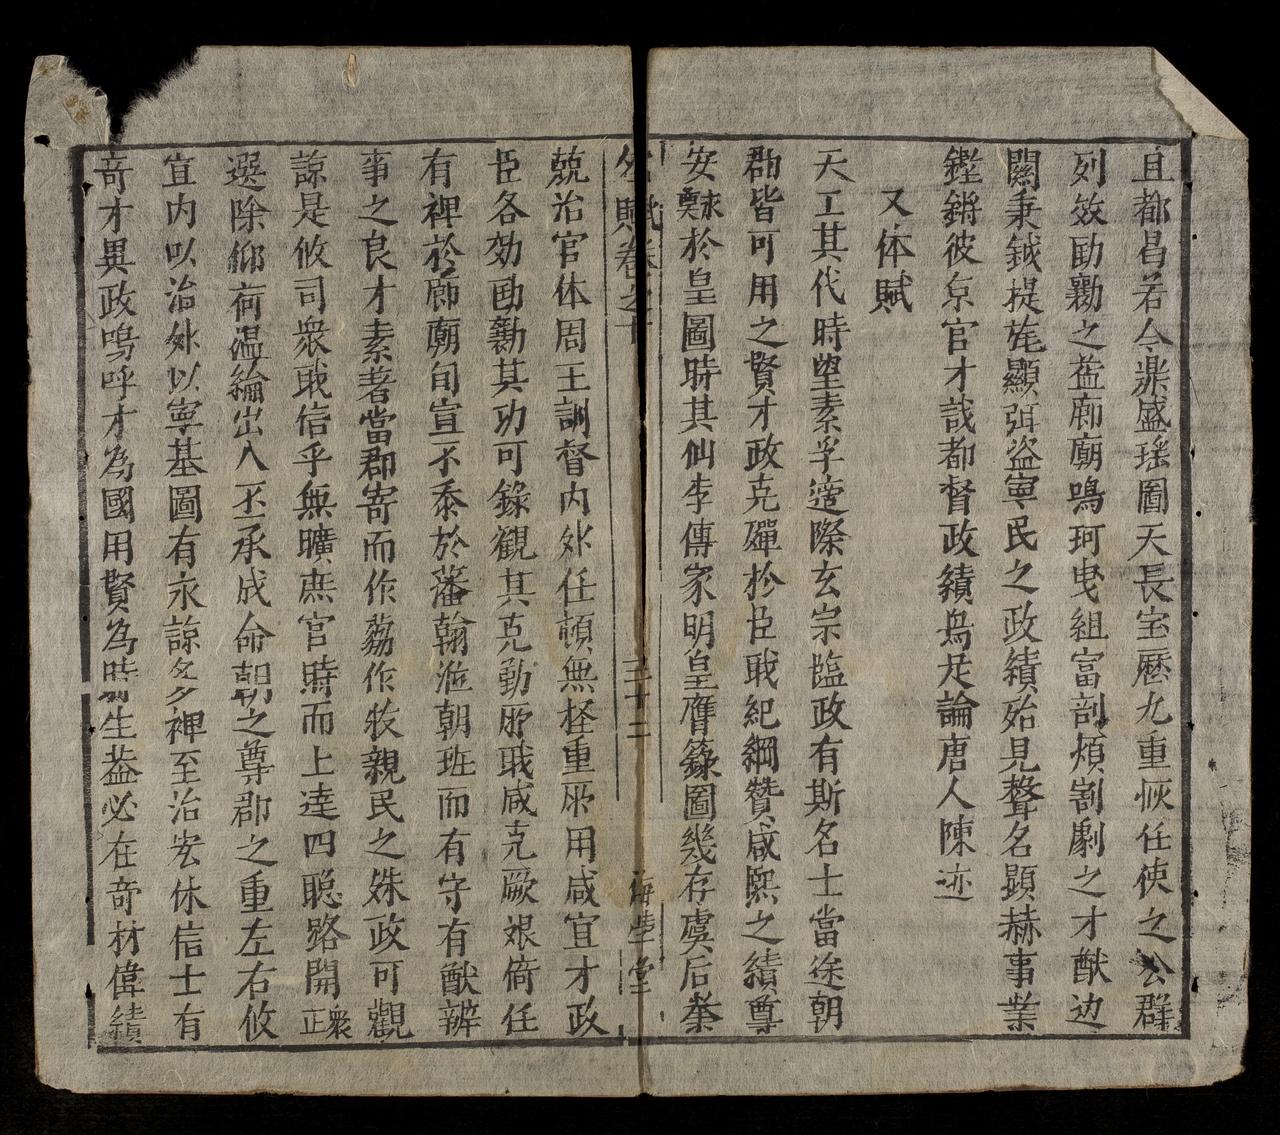 且都昌若今鼎盛瑶圖天長宝曆九重恢任使之公群
列效勛勷之葢廊廟鳴珂曳組富剖煩割劇之才猷边
閫秉鉞提旄顯弭盗寧民之政績殆見聲名顕赫事業
鏗鏘彼京官才哉都督政績烏足論唐人陳迹
又体賦
天工其代時望素孚適際玄宗臨政有斯名士當途朝
郡皆可用之賢才政克殫扵臣職紀綱贊咸熙之績尊
安艱求於皇圖時其仙李傳家明皇膺籙圖幾存虞后
兢治官体周王訓督内外任頓無軽重所用咸宜才政
臣各効勛勷其功可錄觀其克勤所職咸克厥艰倚任
有裨於廊廟旬宣不忝於藩翰涖朝班而有守有猷辨
事之良才素著當郡寄而作蒭作牧親民之殊政可觀
諒是攸司衆職信乎無曠庶官時而上達四聡路開衆正
選除仰荷温綸出入丕承成命朝之尊郡之重左右攸
宜内以治外以寧基圖有永諒多裨至治宏休信士有
竒才異政嗚呼才為國用賢為時生盖必在竒材偉績
海學堂